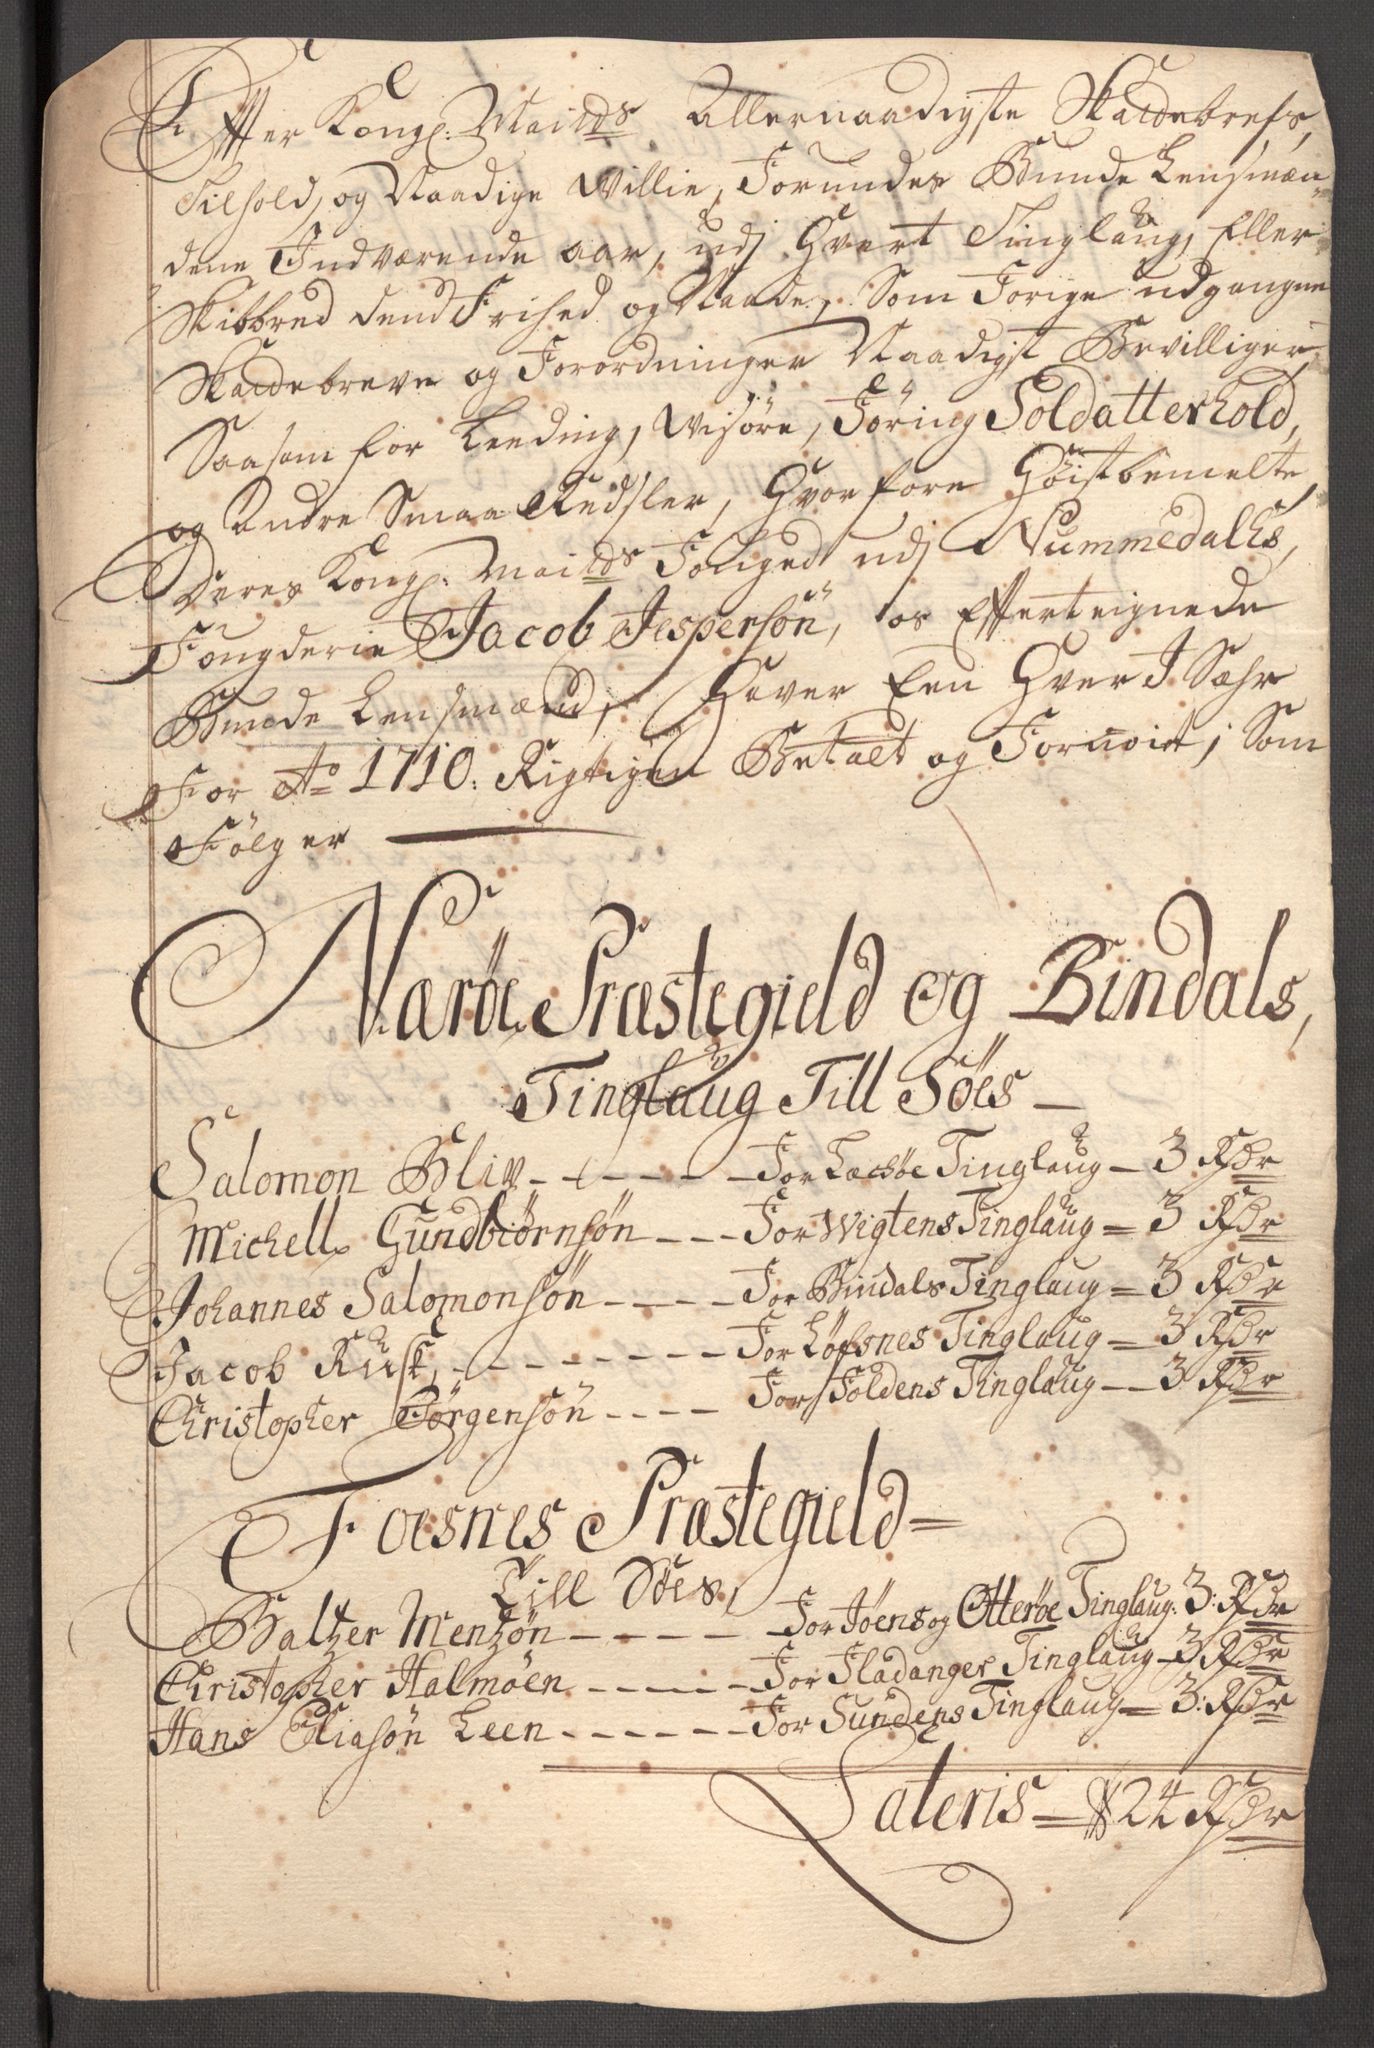 Effter Kongl: Maitds Allernaadigste Skattebrefs,
Tilhold, og Naadige Willie, Forundes Bunde Lensmæn
dene Indværende aar, udj Hvert Tinglaug, Eller
Skibbred dend Frihed og Naade, Som Forige udgangne
Skattebreve og Forordninger Naadigst Bevilliger,
Saasom for Leeding, Wisøre, Föring Soldatterhold,
og Andre Smaa Redsler, Hvorfore Høistbemelte
Deres Kongl: Maitds Fouged udj Nummedalls,
Fougderie Jacob Jespersön, os Efferteignede
Bunde Lensmænd, Haver Een Hver I Sæhr
For Ao 1710. Rigtigen Betalt og Fornoiet, Som
Fölger
Næröe Præstegield og Bindals,
Tinglaug Till Söes
Salomon Bliv - - - - - For Lechöe Tinglaug - 3 Rdr
Michell Gundbiörnsön - - - For Wigtens Tinglaug = 3 Rdr
Johannes Salomonsön - - - - For Bindals Tinglaug = 3 Rdr
Jacob Rusk - - - - - - - For Löfsnes Tinglaug = 3 Rdr
Christopher Jörgensön - - - - For Foldens Tinglaug - 3 Rdr
Foesnes Præstegield =
Till Söes,
Baltzer Mentzön - - - - - For Jöens og Otteröe Tinglaug: 3: Rdr
Christopher Halmöen - - - - - For Fladanger Tinglaug - 3 Rdr
Hans Eliasön Leen - - - - - - For Sundens Tinglaug = 3: Rdr
Lateris = 24 Rdr